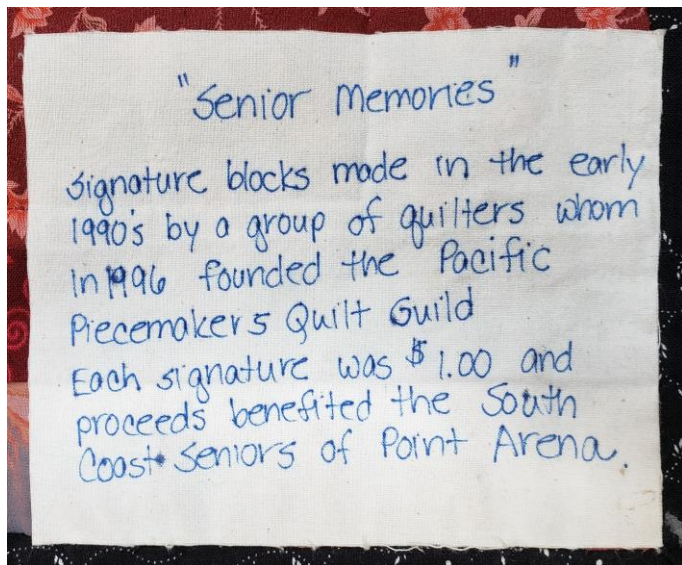 "Senior Memories"
Signature blocks made in the early
1990's by a group of quilters whom
in 1996 founded the Pacific
Piecemakers Quilt Guild
Each signature was $1.00 and
proceeds benefited the South
Coast Seniors of Point Arena.